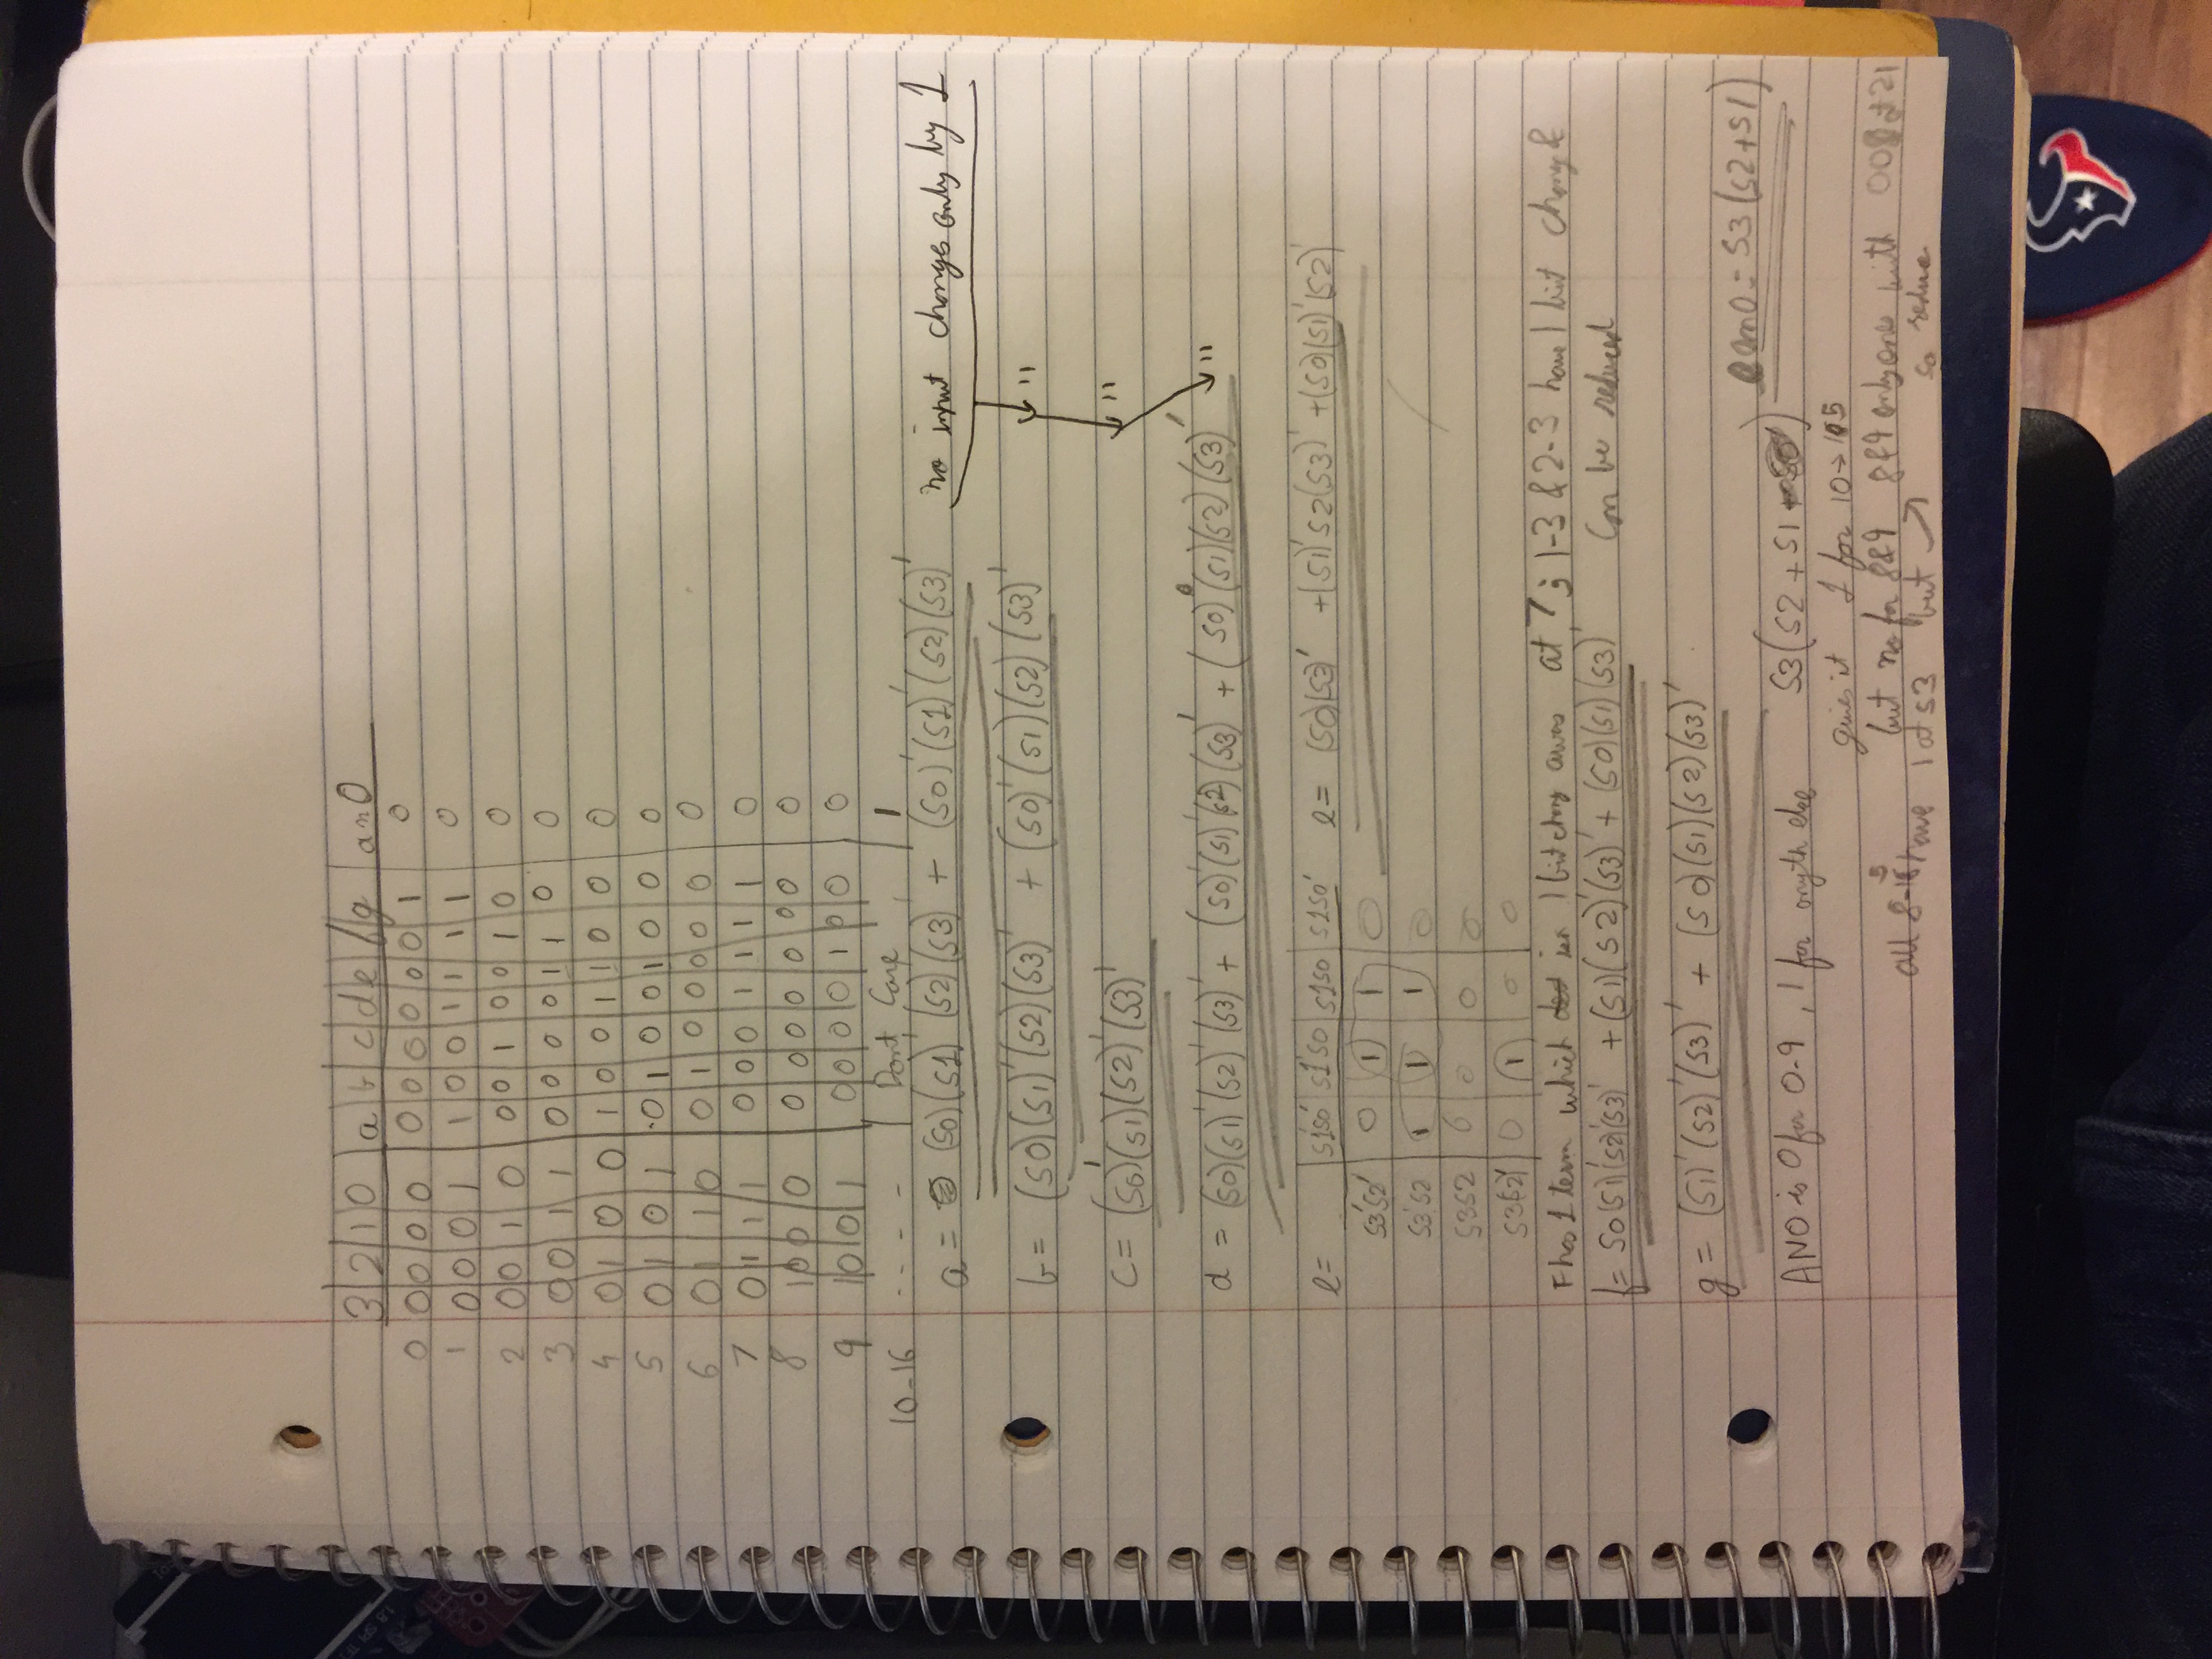 3 2 1 0 a b c d e f g an0
0 0 0 0 0 0 0 0 0 0 0 1 0
1 0 0 0 1 1 0 0 1 1 1 1 0
2 0 0 1 0 0 0 1 0 0 1 0 0
3 0 0 1 1 0 0 0 0 1 1 0 0
4 0 1 0 0 1 0 0 1 1 0 0 0
5 0 1 0 1 0 1 0 0 1 0 0 0
6 0 1 1 0 0 1 0 0 0 0 0 0
7 0 1 1 1 0 0 0 1 1 1 1 0
8 1 0 0 0 0 0 0 0 0 0 0 0
9 1 0 0 1 0 0 0 0 1 0 0 0
10-16 - - - - Dont Care 1
a = (S0)(S1)'(S2)'(S3)' + (S0)'(S1)'(S2)(S3)' no input changes only by 1
b = (S0)(S1)'(S2)(S3)' + (S0)'(S1)(S2)(S3)' "
c = (S0)'(S1)(S2)'(S3)' "
d = (S0)(S1)'(S2)'(S3)' + (S0)'(S1)'(S2)(S3)' + (S0)(S1)(S2)(S3)' "
e = S1'S0' S1'S0 S1S0 S1S0' e = (S0)(S3)' + (S1)'S2(S3)' + (S0)(S1)'(S2)'
S3'S2' 0 1 1 0
S3'S2 1 1 1 0
S3S2 0 0 0 0
S3(S2)' 0 1 0 0
F has 1 term which isn 1 bit chang away at 7; 1-3 & 2-3 have 1 bit change &
f = S0(S1)'(S2)'(S3)' + (S1)(S2)'(S3)' + (S0)(S1)(S3)' Can be reduced
g = (S1)'(S2)'(S3)' + (S0)(S1)(S2)(S3)'
an0 = S3(S2+S1)
AN0 is 0 for 0-9, 1 for anyth else S3(S2+S1)
gives it 1 for 10→15
but no for 8&9 8&9 only ones with 00
all 8-15 have 1 at S3 but so reduce